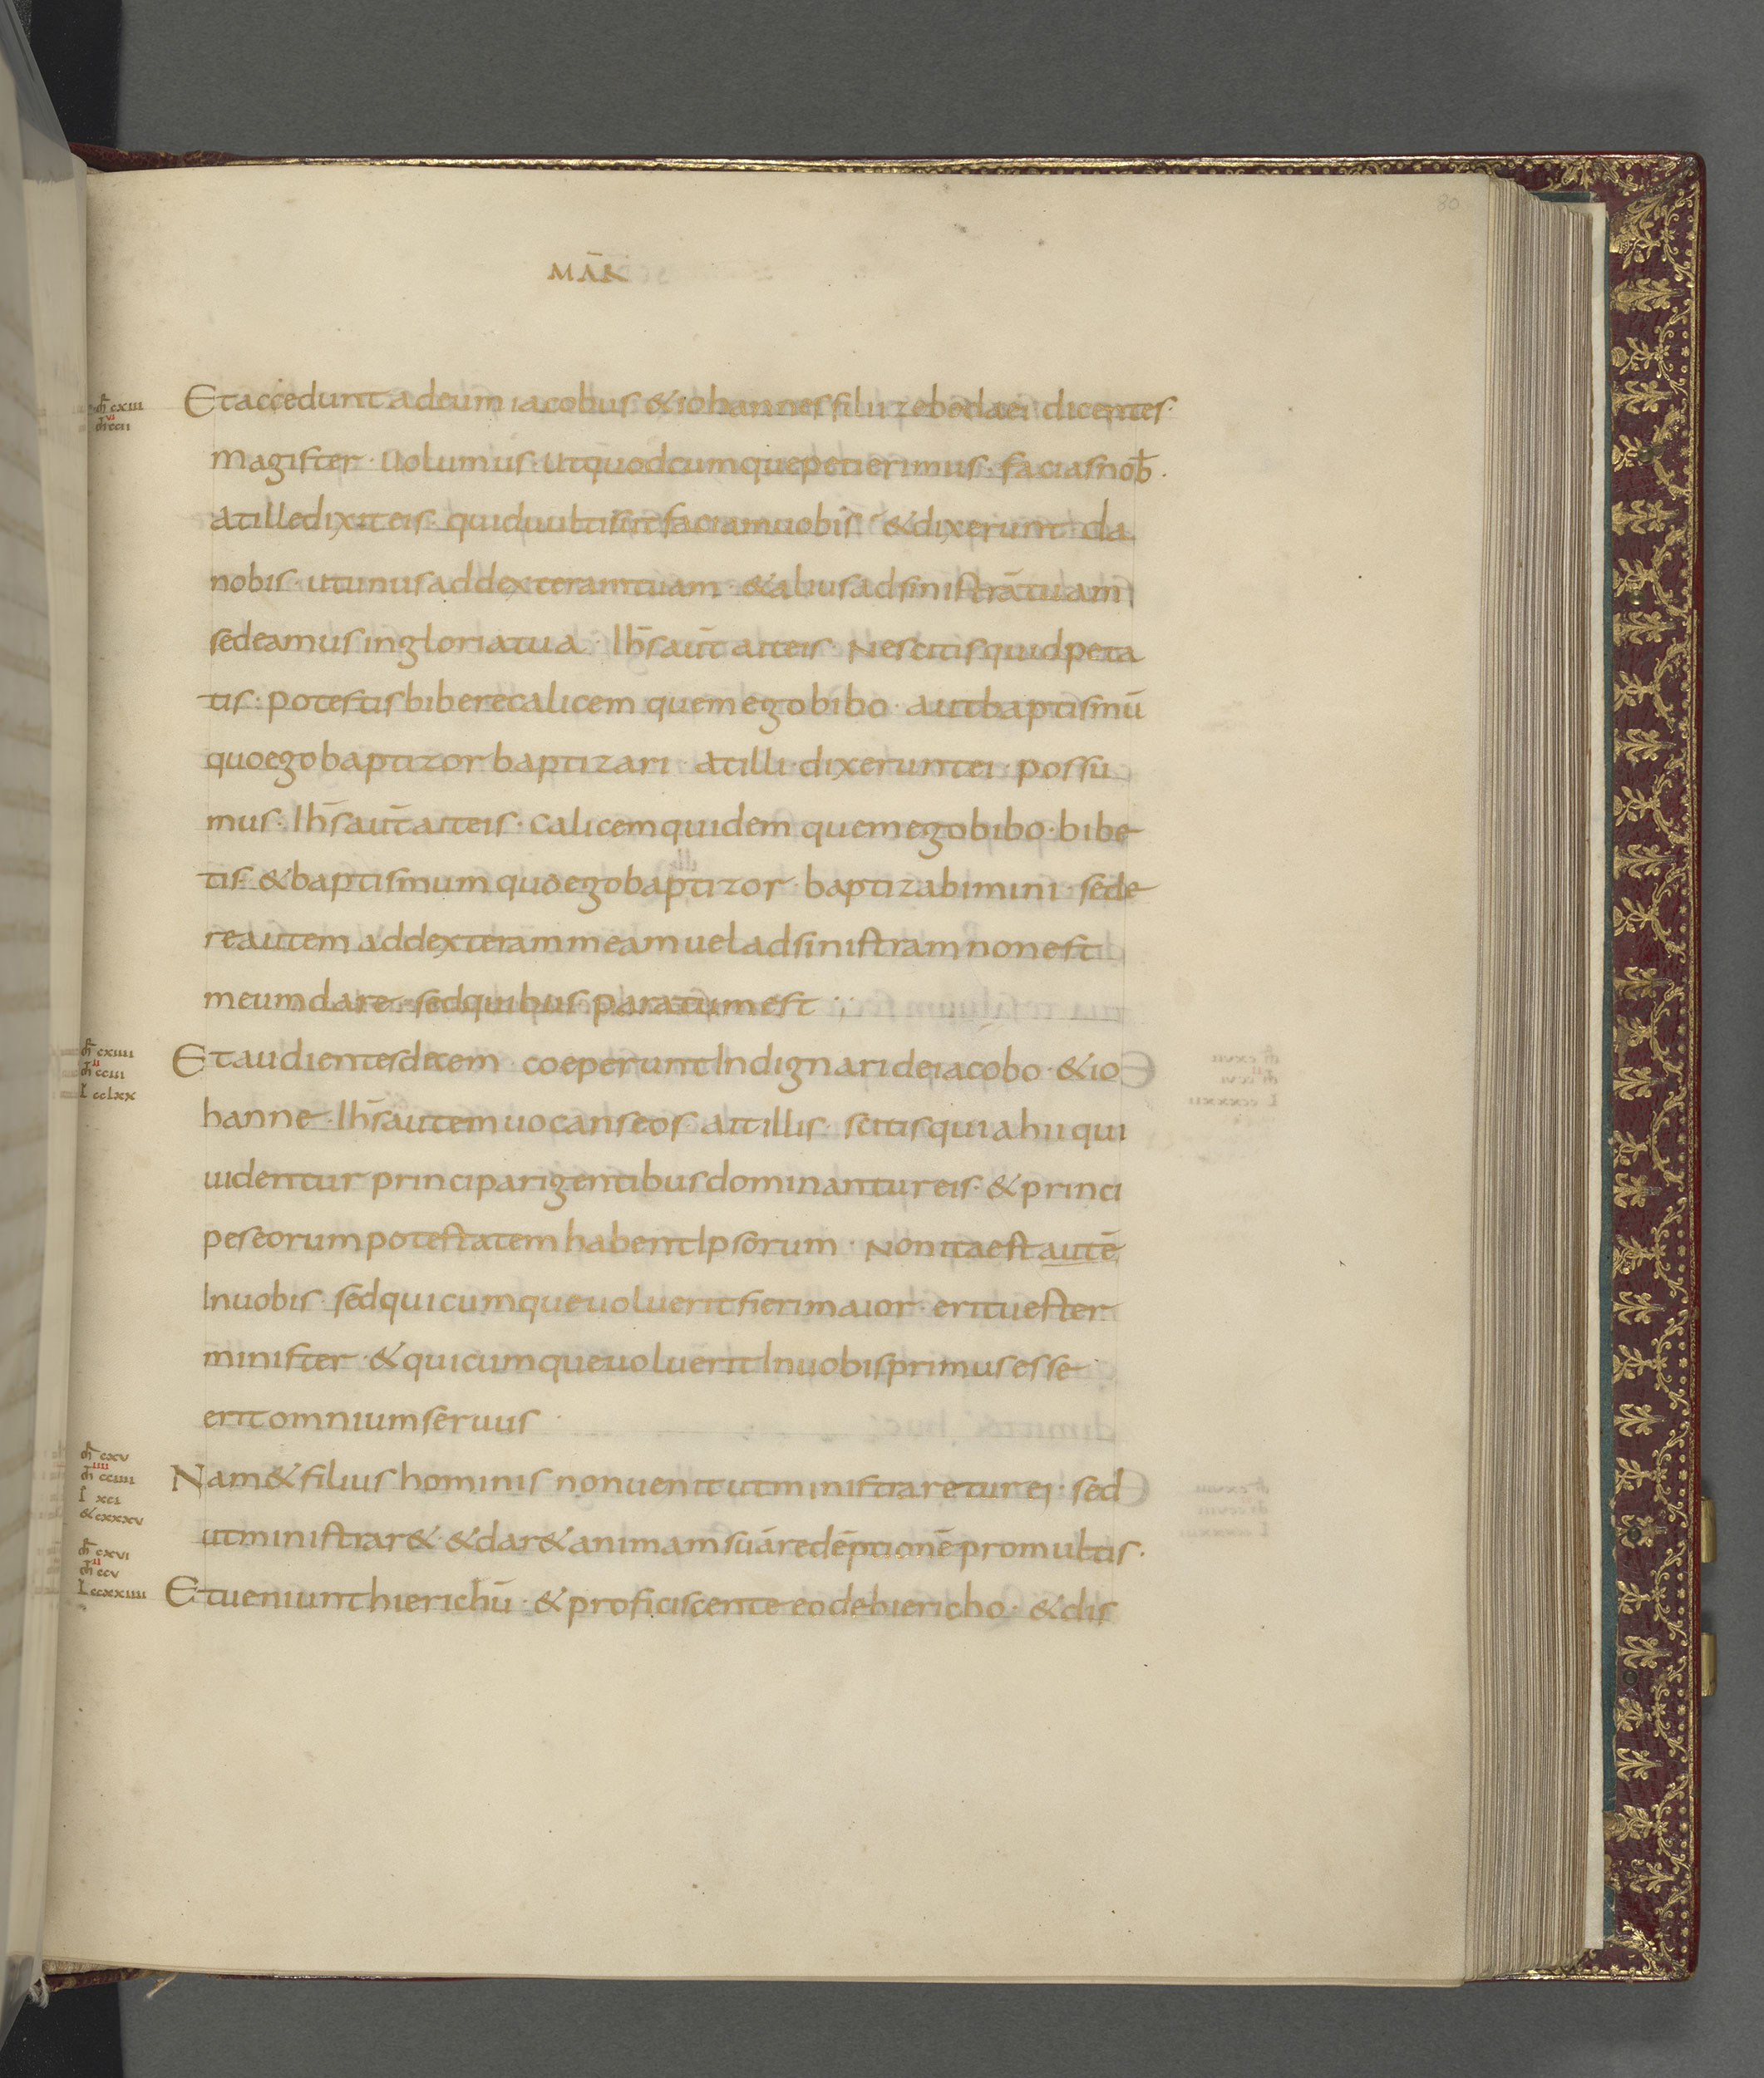 80
MAR̄
Et accedunt ad eum iacobus & iohannes filii zebedaei dicentes·
magister· Uolumus· ut quodcumque petierimus· facias nob̄·
at ille dixit eis· quid uultis ut faciam uobis· & dixerunt· da
nobis· ut unus ad dexteram tuam· & alius ad sinistrā tuam
sedeamus in gloria tua· Ih̄s aūt ait eis· Nescitis quid peta
tis· potestis bibere calicem quem ego bibo· aut baptismū
quo ego baptizor baptizari· at illi dixerunt ei· possu
mus· Ih̄s aūt ait eis· calicem quidem quem ego bibo· bibe
tis· & baptismum quo ego baptizor· baptizabimini· sede
re autem ad dexteram meam uel ad sinistram non est
meum dare· sed quibus paratum est·
cxiii
ccii
Et audientes decem· coeperunt Indignari de iacobo· & io
hanne· Ih̄s autem uocans eos· ait illis· scitis quia hii qui
uidentur principari gentibus dominantur eis· & princi
pes eorum potestatem habent Ipsorum· Non ita est autē
In uobis· sed quicumque uoluerit fieri maior· erit uester
minister· & quicumque uoluerit In uobis primus esse·
erit omnium seruus·
cxiiii
cciii
L cclxx
Nam & filius hominis non uenit ut ministraretur ei· sed
ut ministrar& · & dar& animam suā redēptionē pro multis·
cxv
cciiii
xci
& cxxxv
Et ueniunt hierichū· & proficiscente eo de hiericho· & dis
cxvi
ccv
L ccxxiiii